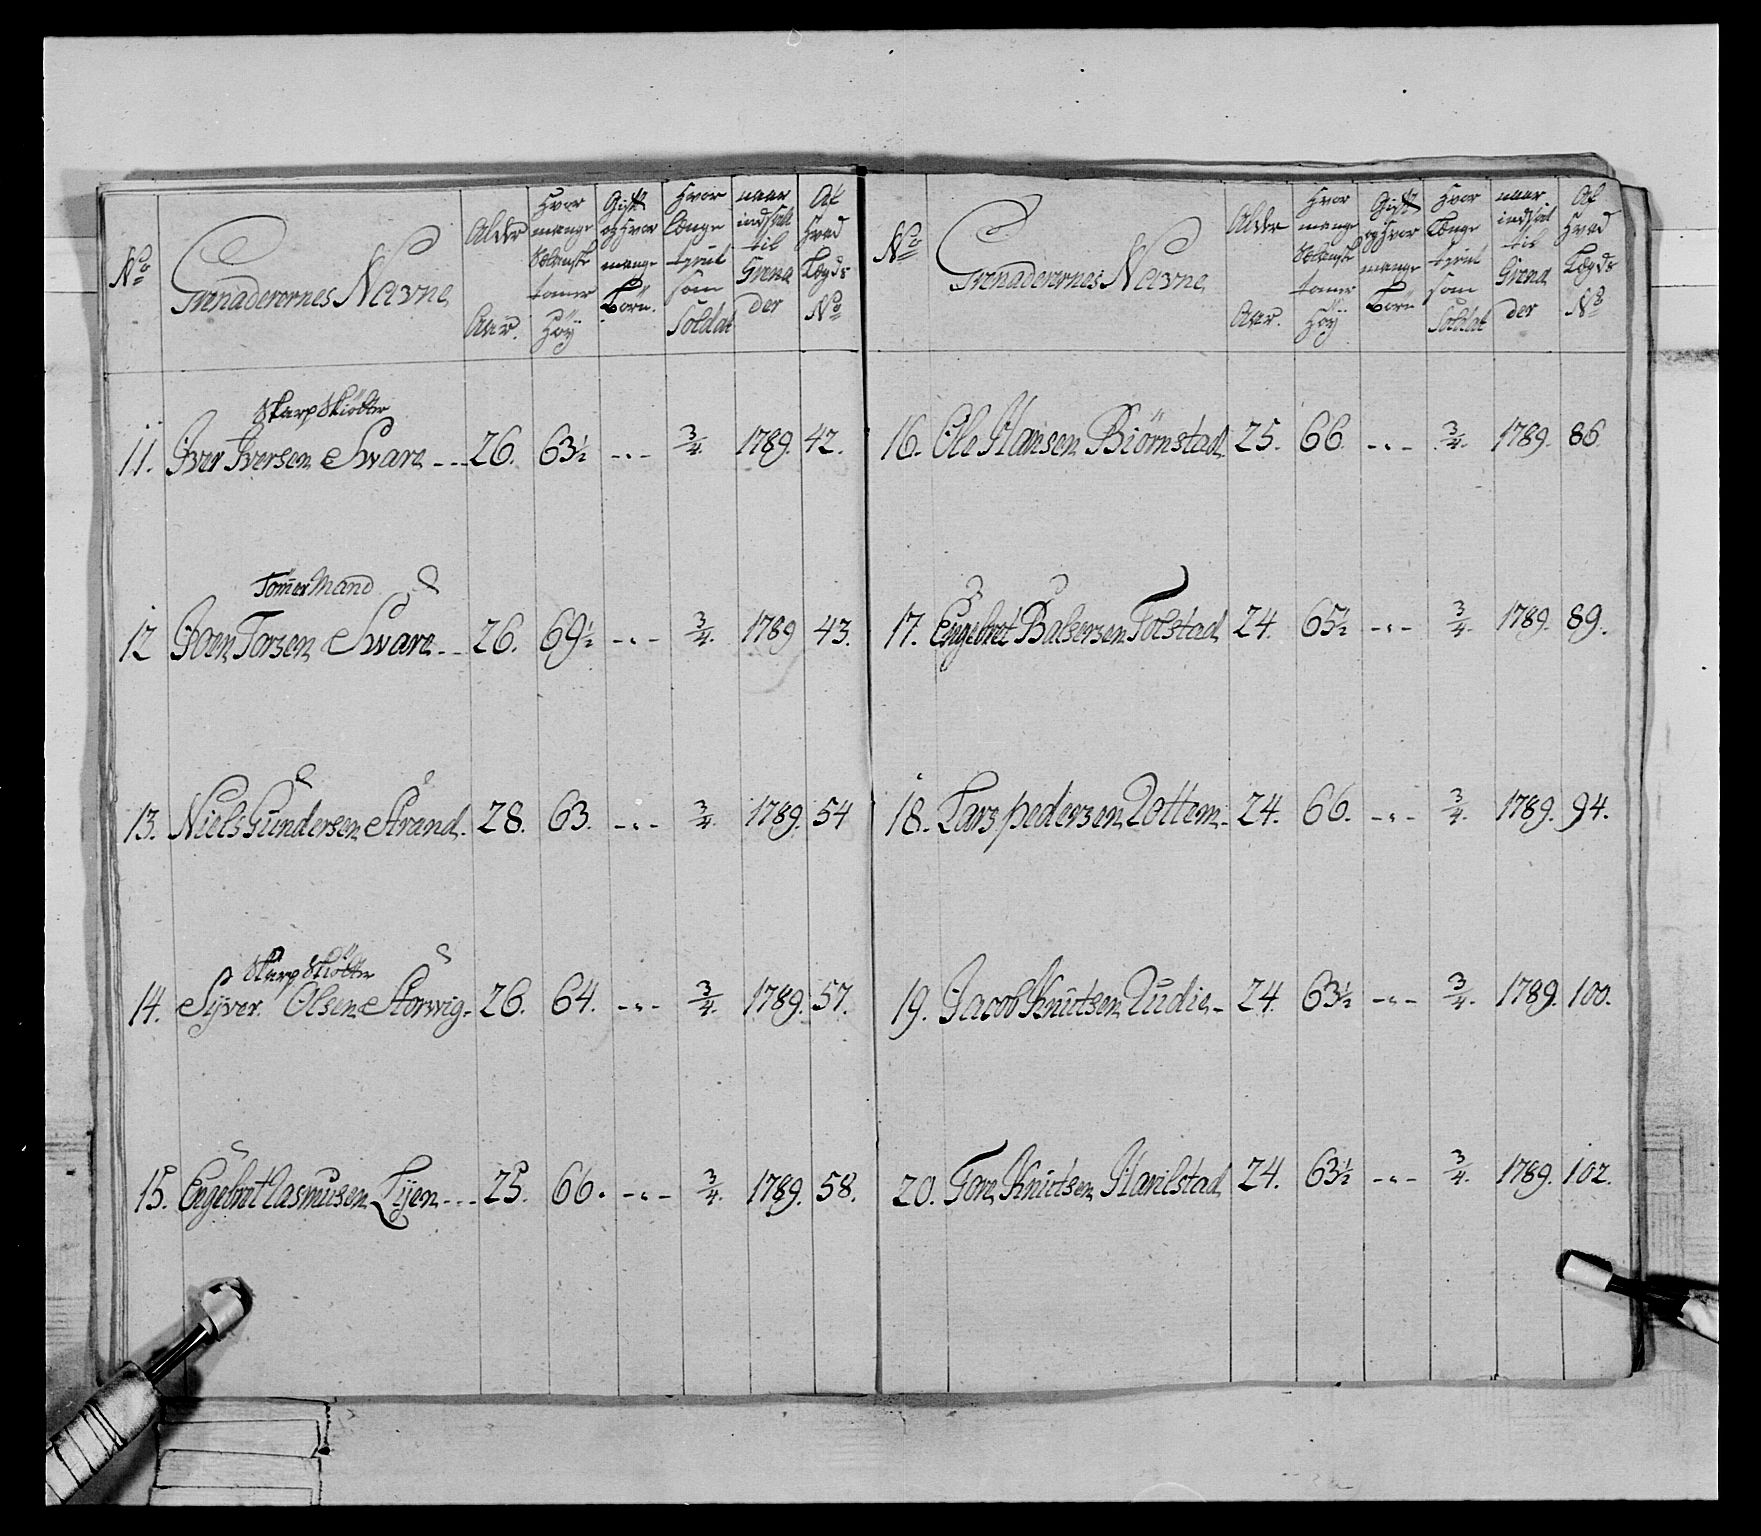 No
Grenaderernes Navne
Alder
Aar.
Hvor mange Sælanske tomer Høÿ
Gift og Hvor mange Børn.
Hvor Længe tient som Soldat
naar indsat til Grena der
Af Hvad Lægds No
Skarp Skiötter
11. Iver Iversen Sware --- 26. 63½ --- ¾. 1789. 42.
Tom̄er Mand
12 Joen Torsen Sware -- 26. 69½ --- ¾. 1789 43.
13. Niels Gundersen Strand. 28. 63. --- ¾. 1789. 54
Skarp Skiötter
14. Sÿver Olsen Storvig. 26. 64. --- ¾. 1789. 57.
15. Engebret Rasmusen Lÿen --- 25. 66. --- ¾. 1789. 58.
No
Grenaderernes Navne
Alder
Aar.
Hvor mange Sælanske tomer Høÿ
Gift og Hvor mange Børn
Hvor Længe tient som Soldat
naar indsat til Grena der
Af Hvad Lægds No
16. Ole Hansen Biörnstad 25. 66. --- ¾. 1789. 86
17. Engebret Balsersen Tolstad 24. 65½ --- ¾. 1789. 89.
18. Lars pedersen - 24. 66. --- ¾. 1789. 94.
19. Jacob Knutsen - 24. 63½ --- ¾. 1789. 100.
20. Tore Knutsen Harilstad 24. 63½ --- ¾. 1789. 102.